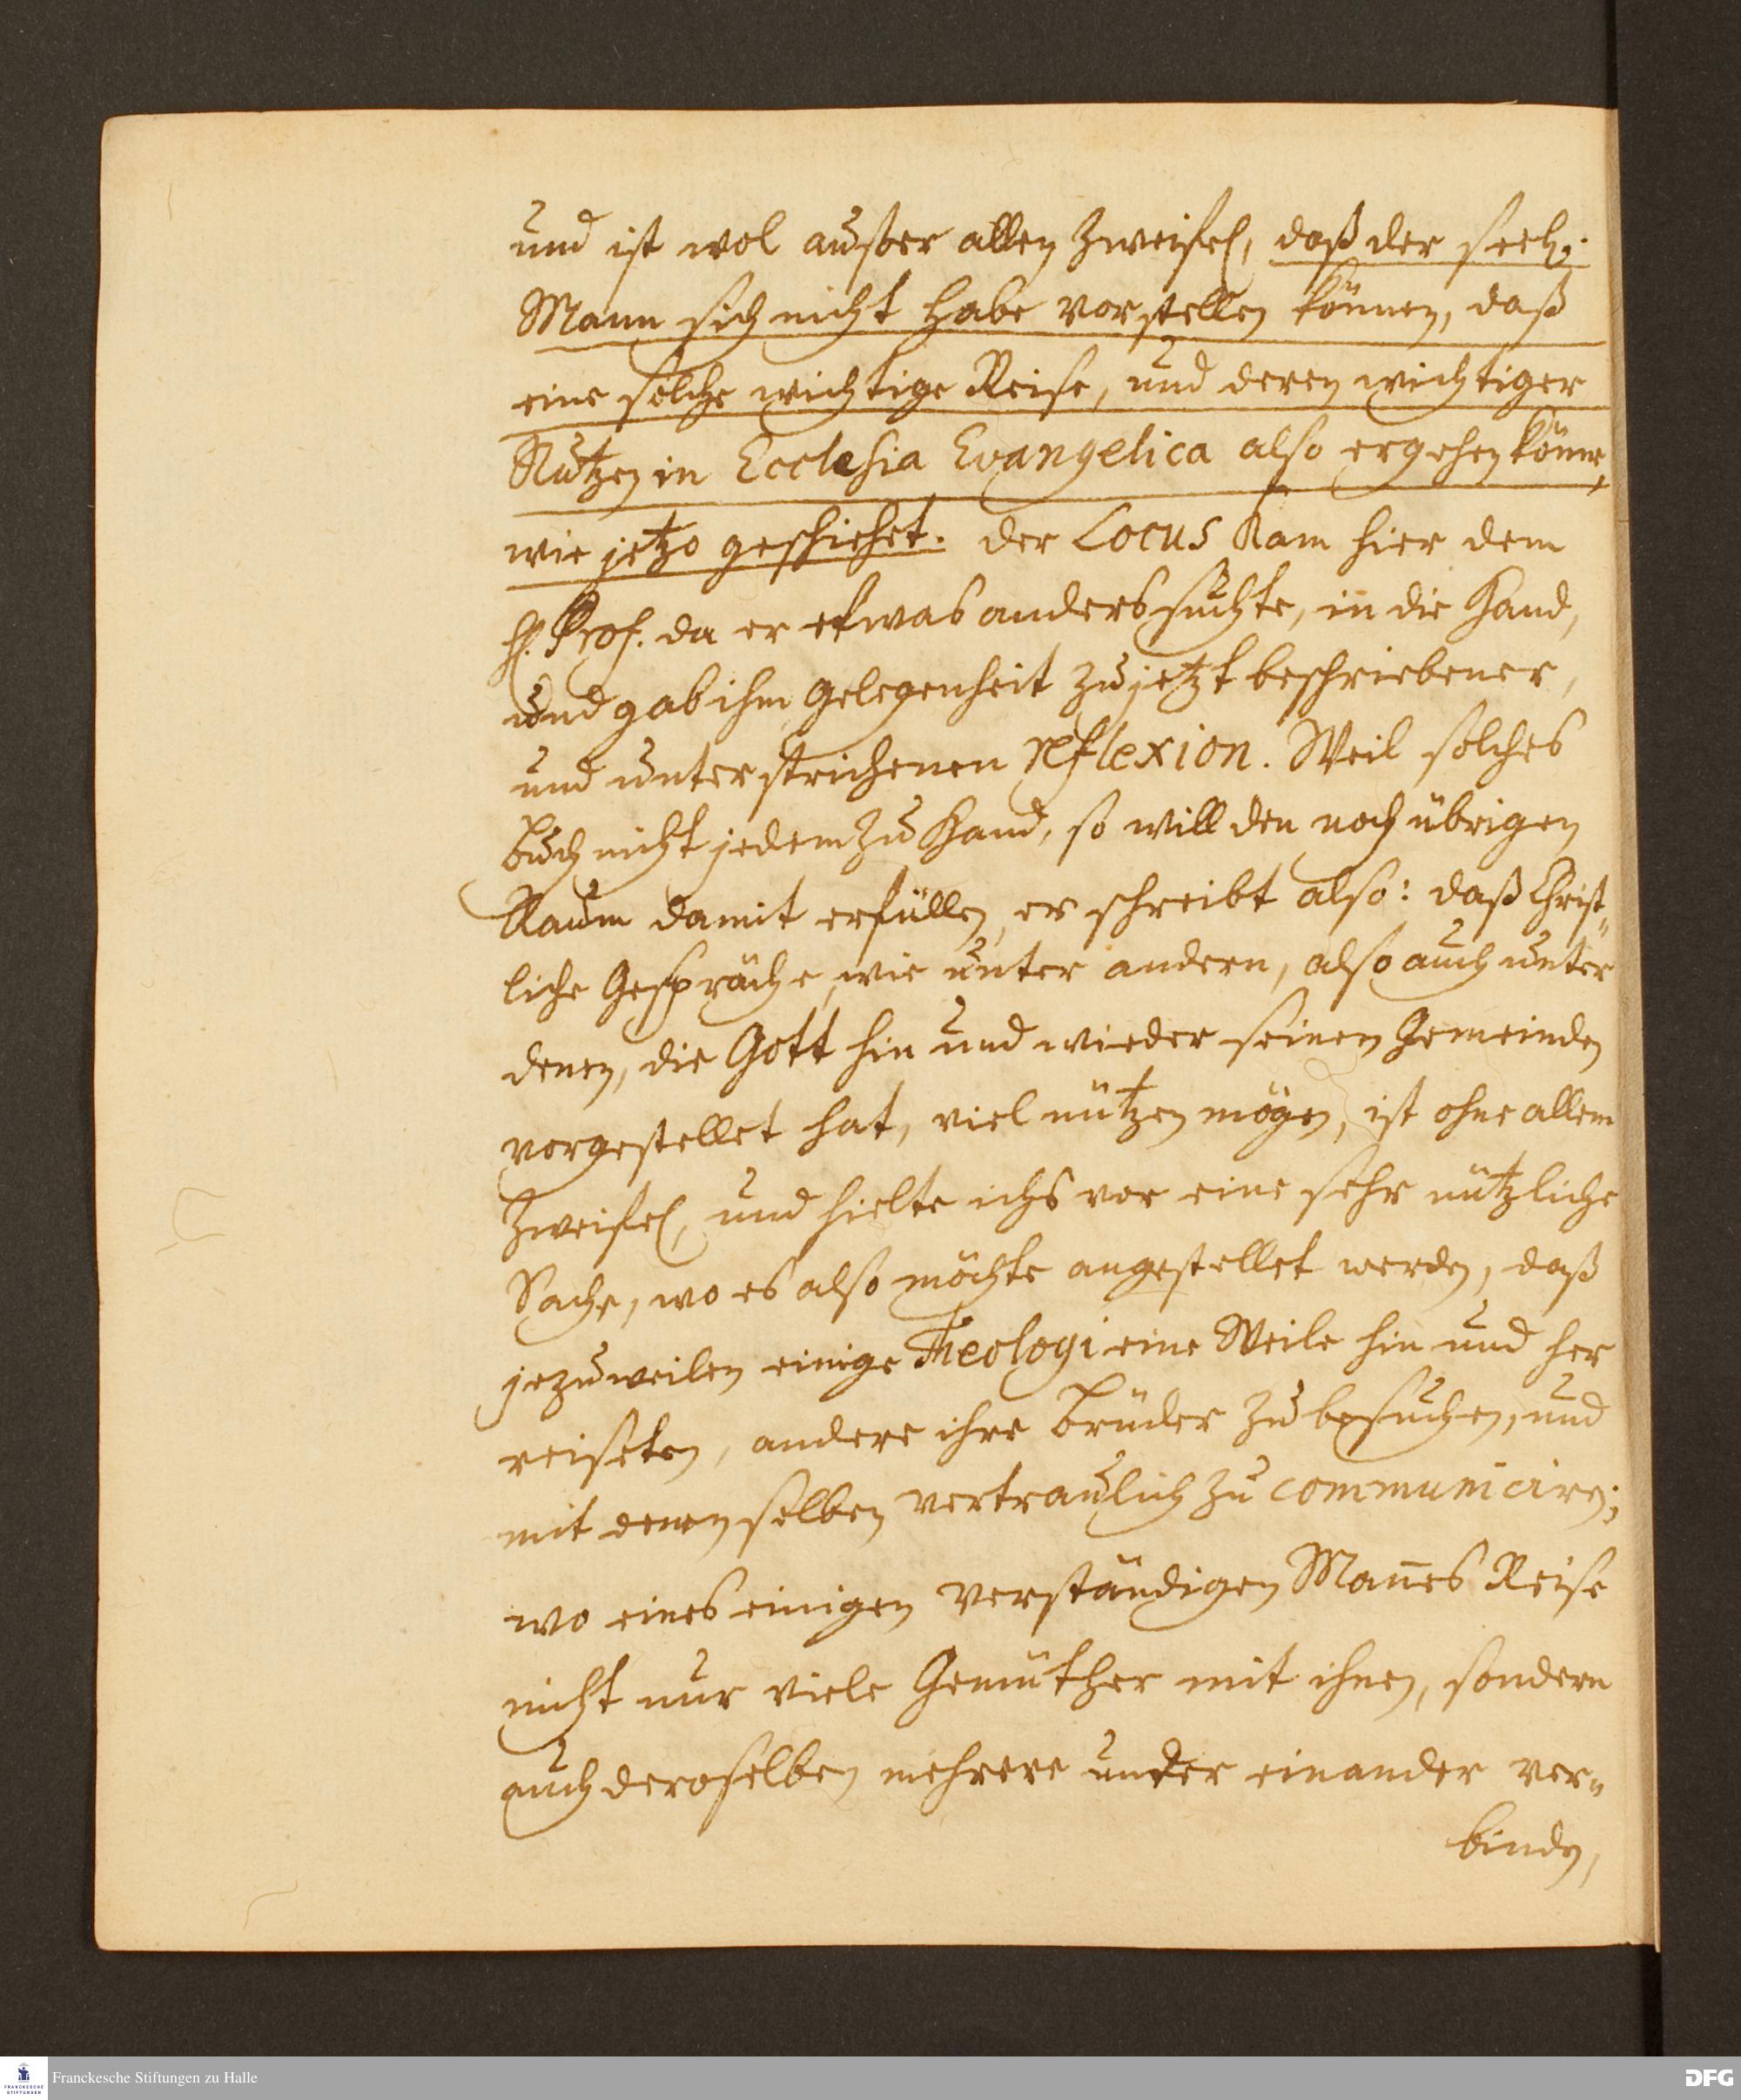 und ist wol außer allen Zweifel, daß der seel:
Mann sich nicht habe vorstellen können, daß
eine solche wichtige Reise, und deren wichtiger
Nutzen in Ecclesia Evangelica also ergehen könne,
wie jetzo geschiehet. der Locus kam hier dem
H. Prof. da er etwas anders suchte, in die Hand,
und gab ihm Gelegenheit zu jetzt beschriebener,
und unterstrichenen reflexion. Weil solches
Buch nicht jedem zu Hand, so will den noch übrigen
Raum damit erfüllen, er schreibt also: daß Christ„
liche Gespräche, wie unter andern, also auch unter
denen, die Gott hin und wieder seinen Gemeinden
vorgestellet hat, viel nützen mögen, ist ohne allem
Zweifel, und hielte ichs vor eine sehr nützliche
Sache, wo es also möchte angestellet werden, daß
jezuweilen einige Theologi eine Weile hin und her
reiseten, andere ihre Brüder zu besuchen, und
mit denenselben vertraulich zu communiciren;
wo eines einigen verständigen Mannes Reise
nicht nur viele Gemüther mit ihnen, sondern
auch deroselben mehrere unter einander ver„
binden,
Franckesche Stiftungen zu Halle
FRANCKESCHE
STIFTUNGEN
DFG